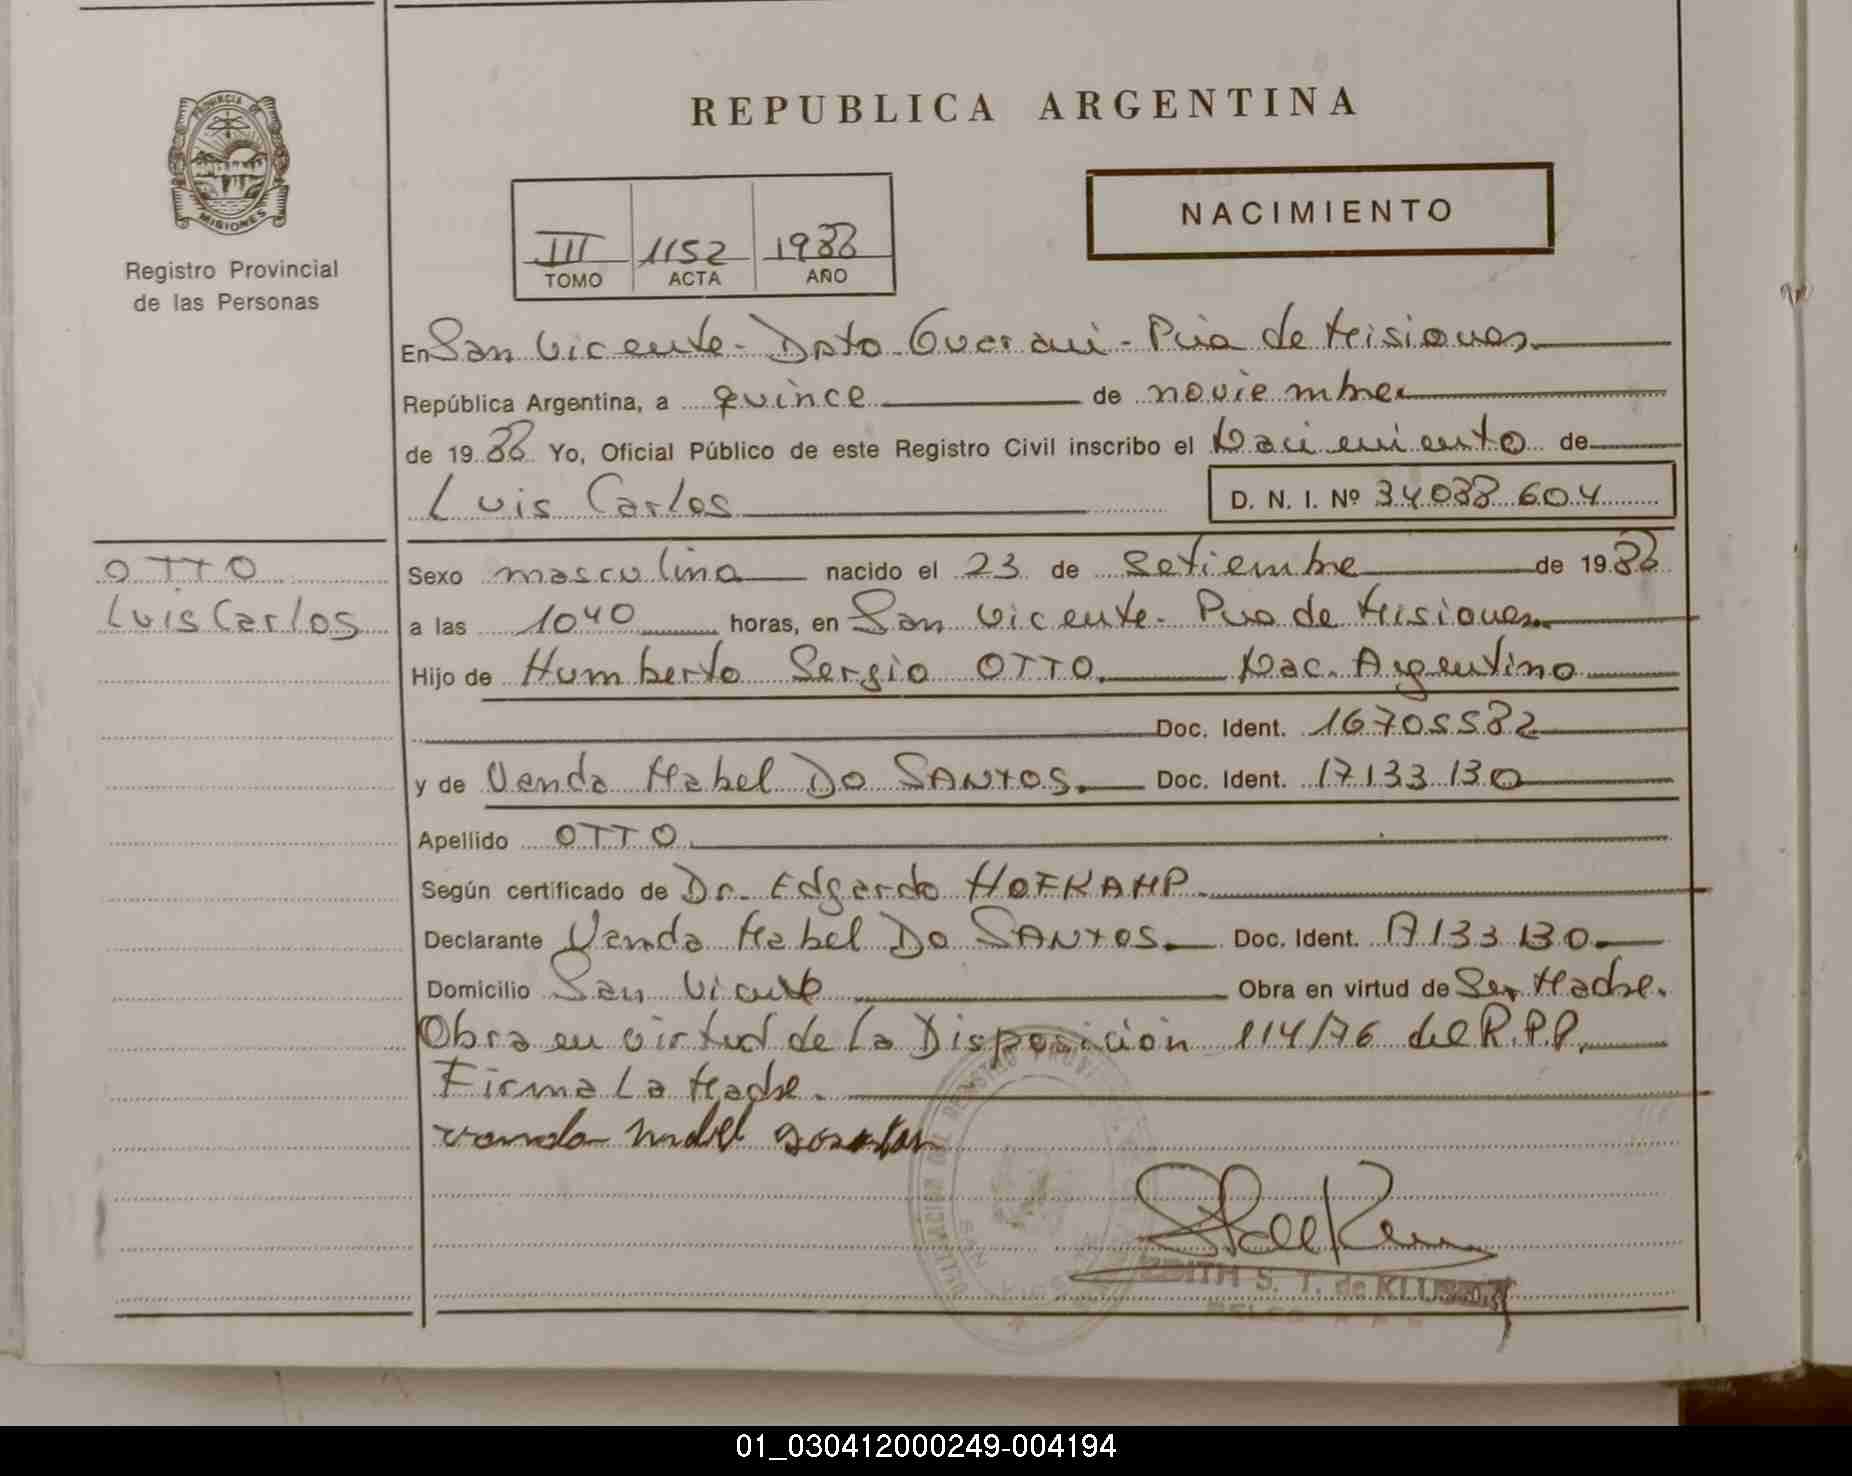 PROVINCIA DE
MISIONES
Registro Provincial
de las Personas
REPUBLICA ARGENTINA
NACIMIENTO
III 1152 1988
TOMO ACTA AÑO
En San Vicente - Dpto Guarani - Pcia de Misiones
República Argentina, a quince de noviembre
de 1988 Yo, Oficial Público de este Registro Civil inscribo el Nacimiento de
Luis Carlos D. N. I. Nº 34.038.604
OTTO
Luis Carlos
Sexo masculino nacido el 23 de Setiembre de 1988
a las 1040 horas, en San Vicente - Pcia de Misiones
Hijo de Humberto Sergio OTTO. Nac. Argentino
Doc. Ident. 16705582
y de Vanda Mabel Do SANTOS. Doc. Ident. 17.133.130
Apellido OTTO
Según certificado de Dr. Edgardo HOFKAMP.
Declarante Vanda Mabel Do SANTOS. Doc. Ident. 17.133.130.
Domicilio San Vicente Obra en virtud de Ser Madre.
Obra en virtud de la Disposición 114/76 del R.P.P.
Firma La Madre.
vanda mabel
EDITH S. T. de
01_030412000249-004194